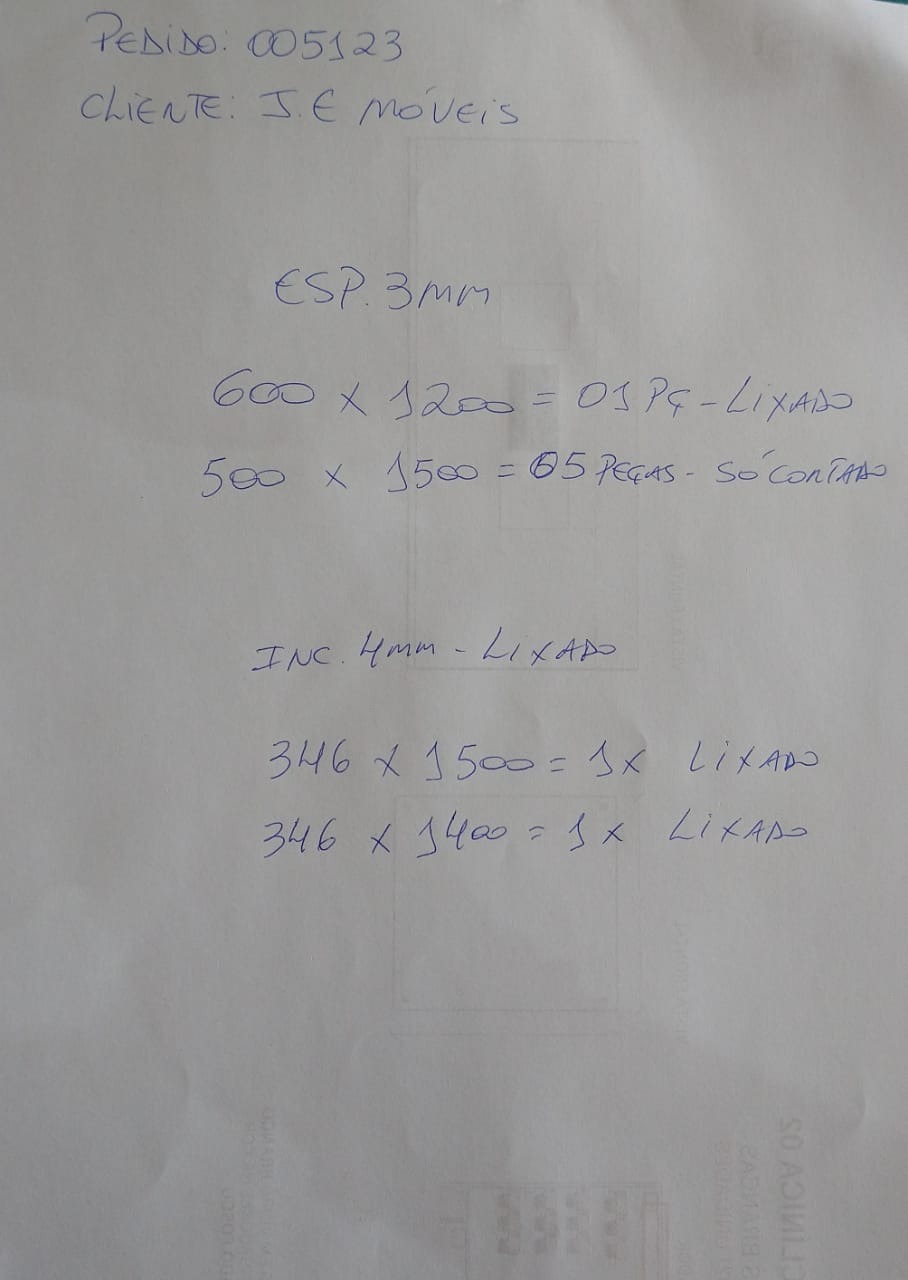 PEDIDO: 005123
CLIENTE: J.E MÓVEIS
ESP. 3mm
600 x 1200 = 01 PÇ - LIXADO
500 x 1500 = 05 PEÇAS - SÓ CORTADO
INC. 4mm - LIXADO
346 x 1500 = 1x LIXADO
346 x 1400 = 1x LIXADO
CLÍNICA 02
S BRANCAS